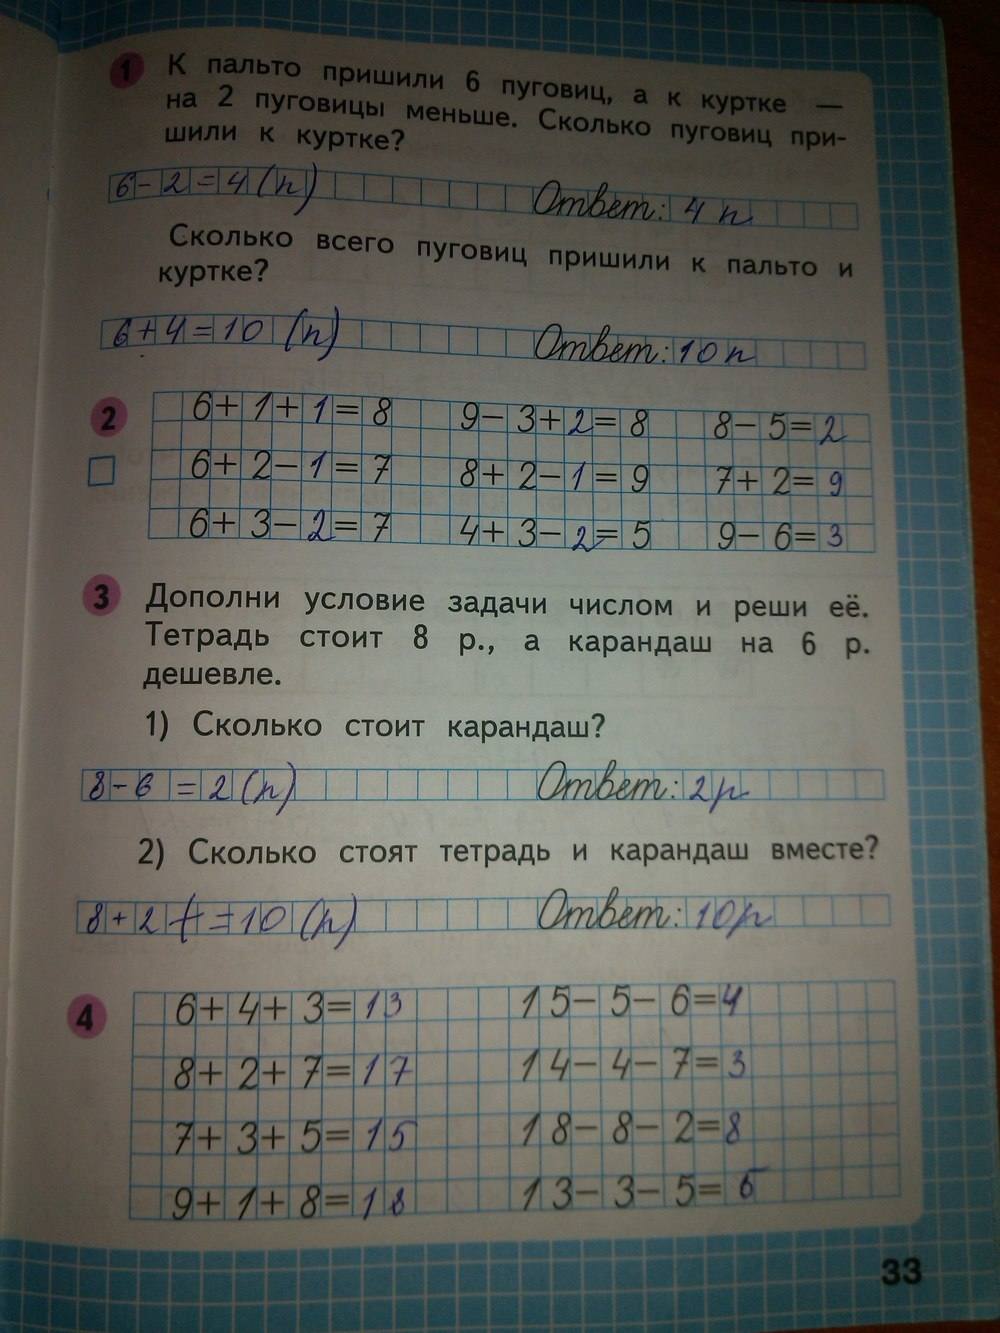 1 К пальто пришили 6 пуговиц, а к куртке —
на 2 пуговицы меньше. Сколько пуговиц при-
шили к куртке?
6-2=4(п) Ответ: 4 п
Сколько всего пуговиц пришили к пальто и
куртке?
6+4=10 (п) Ответ: 10 п
2 6+1+1=8 9-3+2=8 8-5=2
6+2-1=7 8+2-1=9 7+2=9
6+3-2=7 4+3-2=5 9-6=3
3 Дополни условие задачи числом и реши её.
Тетрадь стоит 8 р., а карандаш на 6 р.
дешевле.
1) Сколько стоит карандаш?
8-6=2(р) Ответ: 2р
2) Сколько стоят тетрадь и карандаш вместе?
8+2=10(р) Ответ: 10р
4 6+4+3=13 15-5-6=4
8+2+7=17 14-4-7=3
7+3+5=15 18-8-2=8
9+1+8=18 13-3-5=5
33